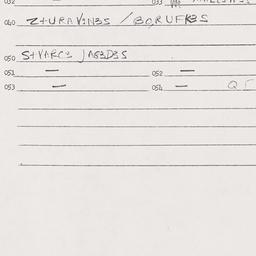 032 033
040 Z+URAVINBS / BORUFKBS
050 S+VARCS JAGBDBS
051 — 052 —
053 — 054 —